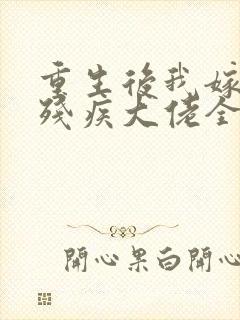 重生後我嫁
殘疾大佬全
開心果白開心